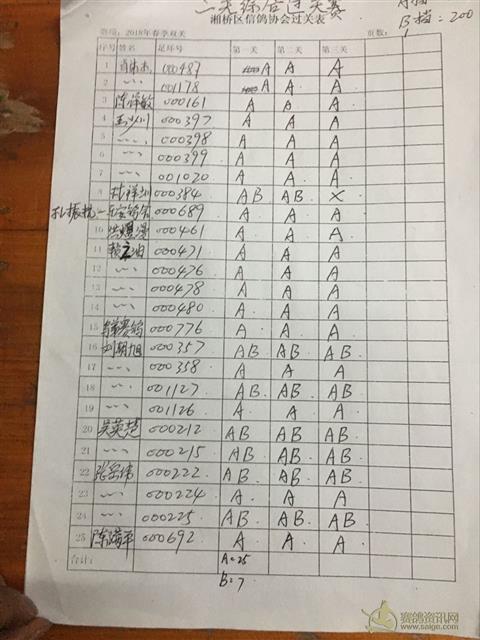 二关综合过关赛
湘桥区信鸽协会过关表
B档:200
赛项:2018年春季双关 页数:1
序号 姓名 足环号 第一关 第二关 第三关
1 000487 A A A
2 〃 001178 A A A
3 000161 A A A
4 000397 A A A
5 〃 000398 A A A
6 〃 000399 A A A
7 〃 001020 A A A
8 000384 AB AB X
9 000689 A A A
10 000461 A A A
11 000471 A A A
12 〃 000476 A A A
13 〃 000478 A A A
14 〃 000480 A A A
15 000776 A A A
16 刘朝旭 000357 AB AB AB
17 〃 000358 A A A
18 〃 001127 AB AB AB
19 〃 001126 A A A
20 吴英楚 000212 AB AB AB
21 〃 000215 AB AB AB
22 000222 AB AB AB
23 〃 000224 A A A
24 〃 000225 AB AB AB
25 000692 A A A
合计: A=25
B=7
赛鸽资讯网
www.saige.com